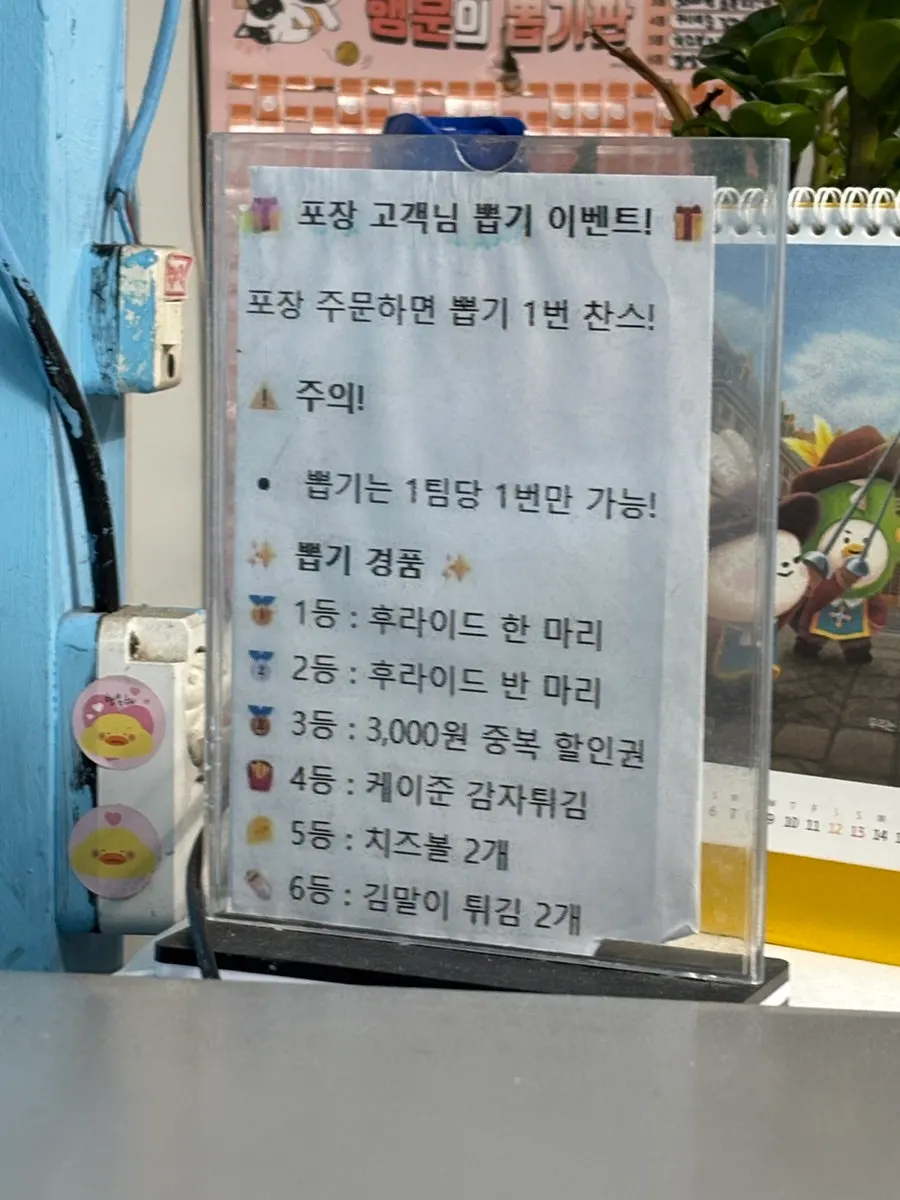 행운의 뽑기판
🎁 포장 고객님 뽑기 이벤트! 🎁
포장 주문하면 뽑기 1번 찬스!
⚠️ 주의!
• 뽑기는 1팀당 1번만 가능!
✨ 뽑기 경품 ✨
🥇 1등 : 후라이드 한 마리
🥈 2등 : 후라이드 반 마리
🥉 3등 : 3,000원 중복 할인권
🍟 4등 : 케이준 감자튀김
🧀 5등 : 치즈볼 2개
🌯 6등 : 김말이 튀김 2개
6 7 9 10 11 12 13 14